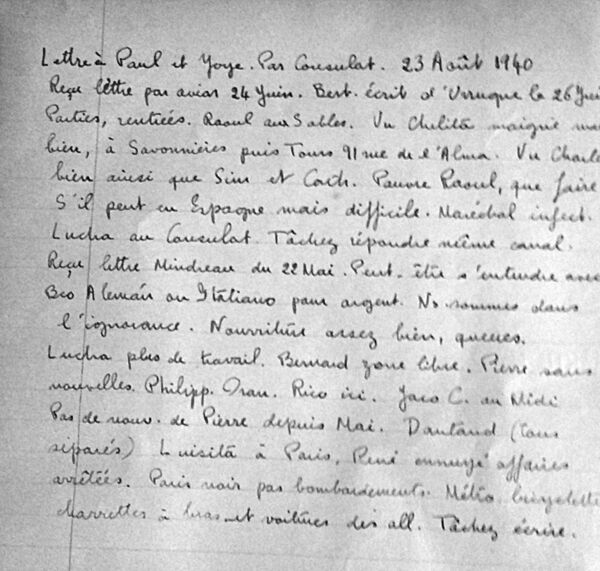 Lettre à Paul et Yoye. Par Consulat. 23 Août 1940
Reçu lettre par avion 24 Juin. Bert. écrit d'Uruaque le 26 Juin
Parties, rentrées. Raoul aux Sables. Vu Chelita maigrie mais
bien, à Savonnières puis Tours 91 rue de l'Alma. Vu Charle
bien ainsi que Sim et Cath. Pauvre Raoul, que faire
S'il peut en Espagne mais difficile. Maréchal infect.
Lucha au Consulat. Tâchez répondre même canal.
Reçu lettre Mindreau du 22 Mai. Peut-être s'entendre avec
Bco Alemán ou Italiano pour argent. Ns sommes dans
l'ignorance. Nourriture assez bien, queues.
Lucha plus de travail. Bernard zone libre. Pierre sans
nouvelles. Philipp. Oran. Rico ici. Jaco C. au Midi
Pas de nouv. de Pierre depuis Mai. Dautand (tous
séparés) Luisita à Paris, René ennuyé affaires
arrêtées. Paris noir pas bombardements. Métro bicyclette
charrettes à bras et voitures des all. Tâchez écrire.